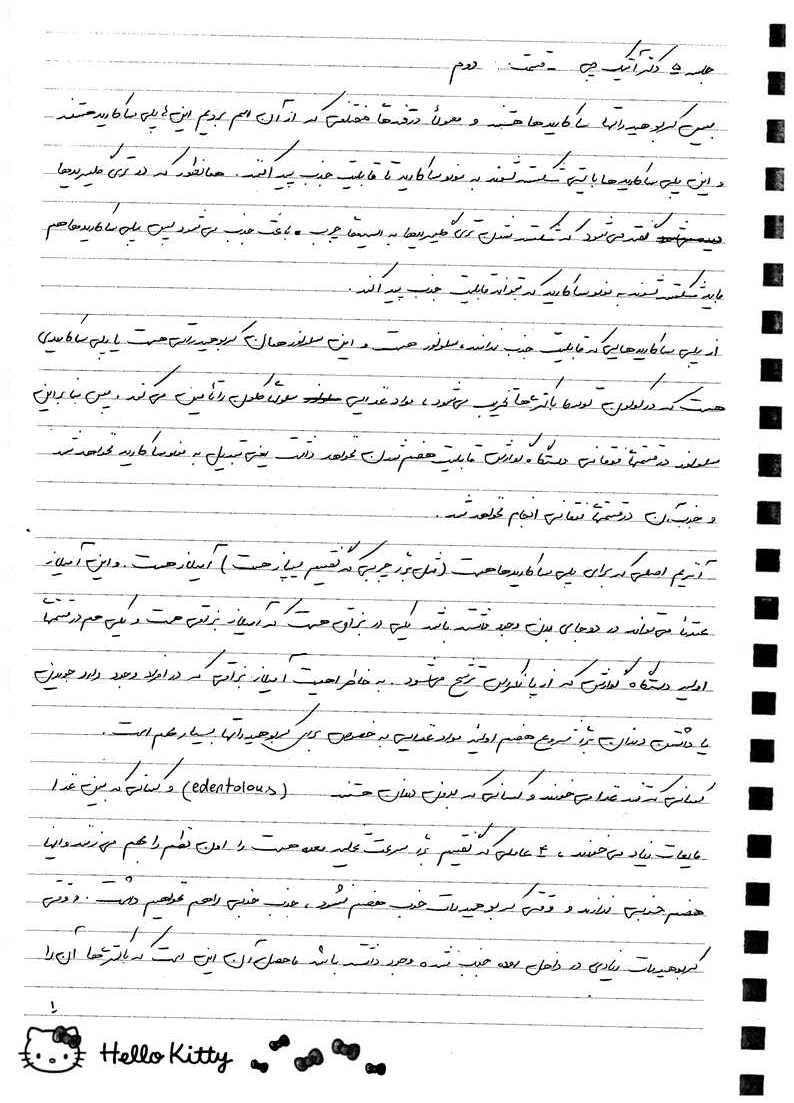 جلسه ۵ دکتر آتیک چی - قسمت دوم
پس کربوهیدراتها ساکاریدها هستند و معمولاً در قندها مختلفی که از آن اسم بردیم این ها پلی ساکارید هستند
و این پلی ساکاریدها بایستی شکسته شوند به مونوساکارید تا قابلیت جذب پیدا کنند. همانطور که در تری گلیسریدها
گفته می‌شود که شکسته شدن تری گلیسریدها به اسیدها چرب باعث جذب می شود پس پلی ساکاریدها هم
باید شکسته شوند به مونوساکارید که بتواند قابلیت جذب پیدا کند.
از پلی ساکاریدهایی که قابلیت جذب ندارند، سلولز هست و این سلولز همان کربوهیدراتی هست یا پلی ساکاریدی
هست که در کولون توسط باکتریها تخریب می‌شود، مواد غذایی سلولهای کولون را تأمین می کند. پس بنابراین
سلولز در قسمتها فوقانی دستگاه گوارش قابلیت هضم شدن نخواهد داشت یعنی تبدیل به مونوساکارید نخواهد شد
و جذب آن در قسمتها فوقانی انجام نخواهد شد.
آنزیم اصلی که برای پلی ساکاریدها هست (مثل برا چربی که گفتیم لیپاز هست) آمیلاز هست. و این آمیلاز
عمدتاً می‌تواند در دو جای بدن وجود داشته باشد یکی در بزاق هست که آمیلاز بزاقی هست و یکی هم در قسمتها
اولیه دستگاه گوارش که از پانکراس ترشح می‌شود. به خاطر اهمیت آمیلاز بزاقی که در افراد وجود دارد جویدن
یا داشتن دندان برا شروع هضم اولیه مواد غذایی به خصوص برای کربوهیدراتها بسیار مهم است.
کسانی که تند غذا می خورند و کسانی که بدون دندان هستند (edentolous) و کسانی که بین غذا
مایعات زیاد می خورند، ۴ عاملی که گفتیم برا سرعت تخلیه معده هست را اون نظم را بهم می زنند و اینها
هضم خوبی ندارند و وقتی کربوهیدرات خوب هضم نشود، جذب خوبی را هم نخواهیم داشت. و وقتی
کربوهیدرات زیادی در داخل روده جذب نشده وجود داشته باشد ماحصل آن این است که باکتریها آن را
۱
Hello Kitty